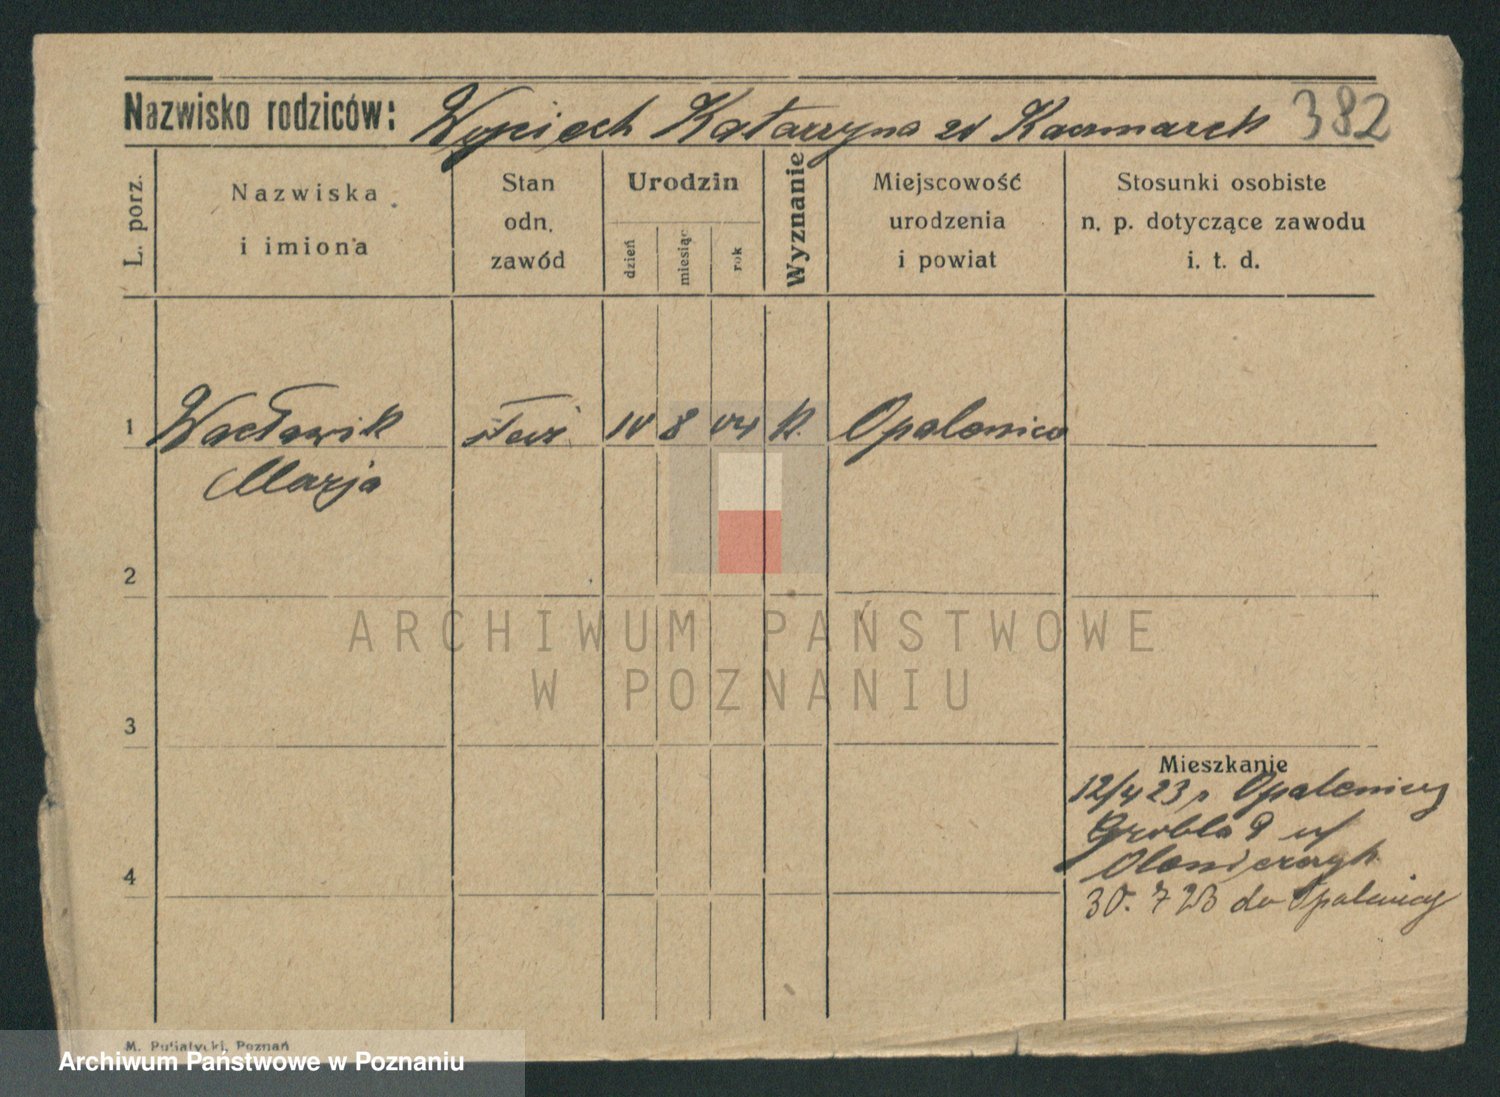 Nazwisko rodziców: Wojciech Katarzyna zd Kaczmarek 382
L. porz.
Nazwiska
i imiona
Stan
odn.
zawód
Urodzin
dzień
miesiąc
rok
Wyznanie
Miejscowość
urodzenia
i powiat
Stosunki osobiste
n. p. dotyczące zawodu
i. t. d.
1 Wacławik 10 8 04 K. Opalenica
Marja
2
ARCHIWUM PAŃSTWOWE
W POZNANIU
3
Mieszkanie
12/4 23 z Opalenicy
Grobla 9
4
30. 7 23 do Opalenicy
M. Putiatycki, Poznań
Archiwum Państwowe w Poznaniu